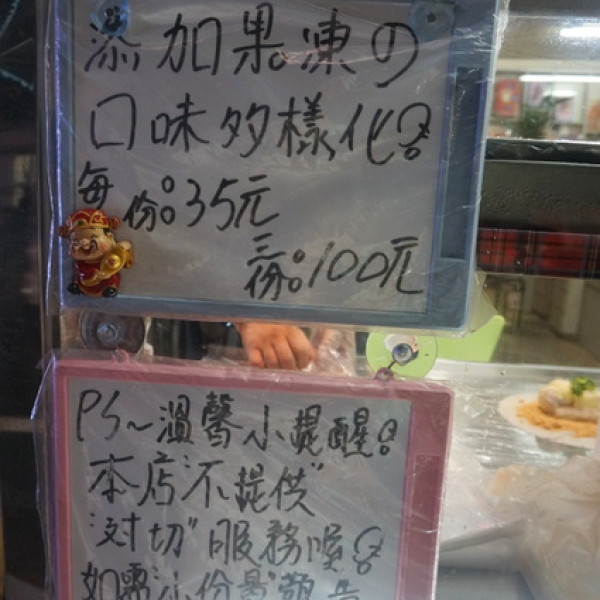 添加果凍の
口味多樣化!
每份:35元
三份:100元
PS~溫馨小提醒!
本店"不提供"
"對切"服務噢!
如需小份量